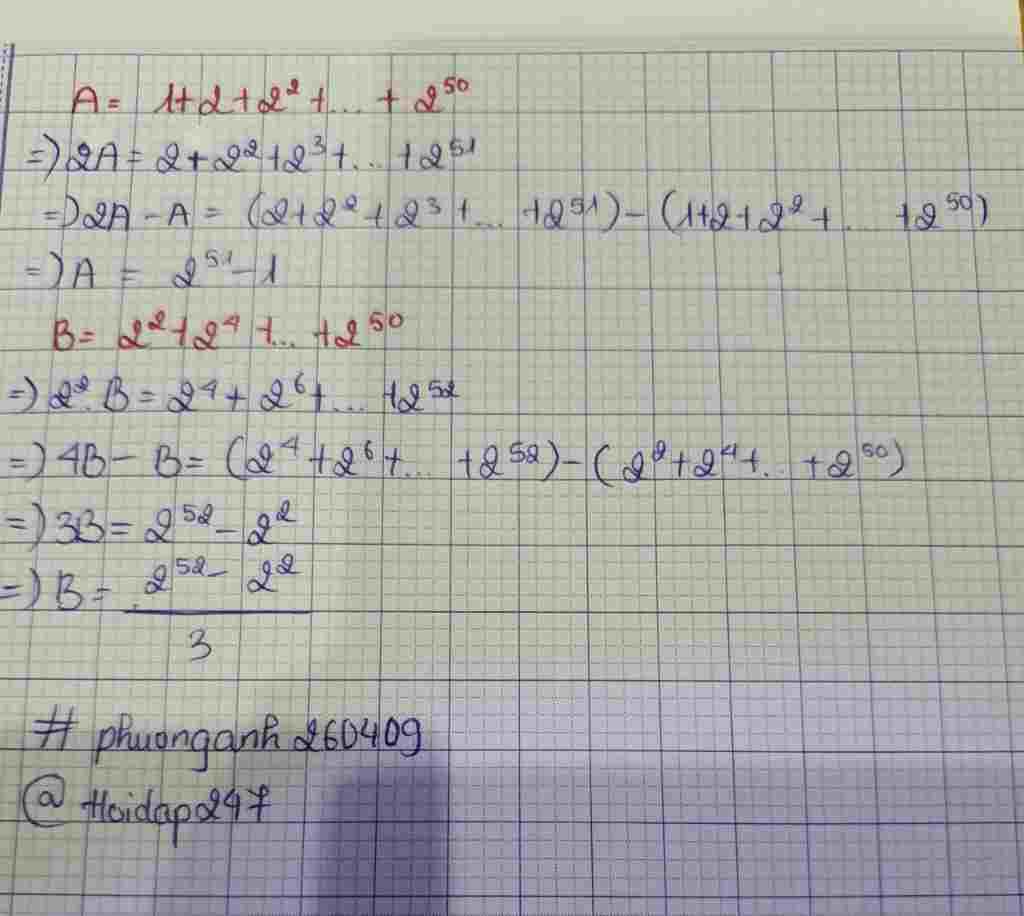 A = 1+2+2² +... + 2⁵⁰
=) 2A = 2 + 2² +2³ +... +2⁵¹
=) 2A - A = (2+2² +2³ +... +2⁵¹) - (1+2+2² +... +2⁵⁰)
=) A = 2⁵¹ - 1
B = 2² +2⁴ +... +2⁵⁰
=) 2².B = 2⁴ + 2⁶ +... +2⁵²
=) 4B - B = (2⁴ +2⁶ +... +2⁵²) - (2² +2⁴ +... +2⁵⁰)
=) 3B = 2⁵² - 2²
=) B = 2⁵² - 2²
3
# phuonganh 260409
@ Hoidap247